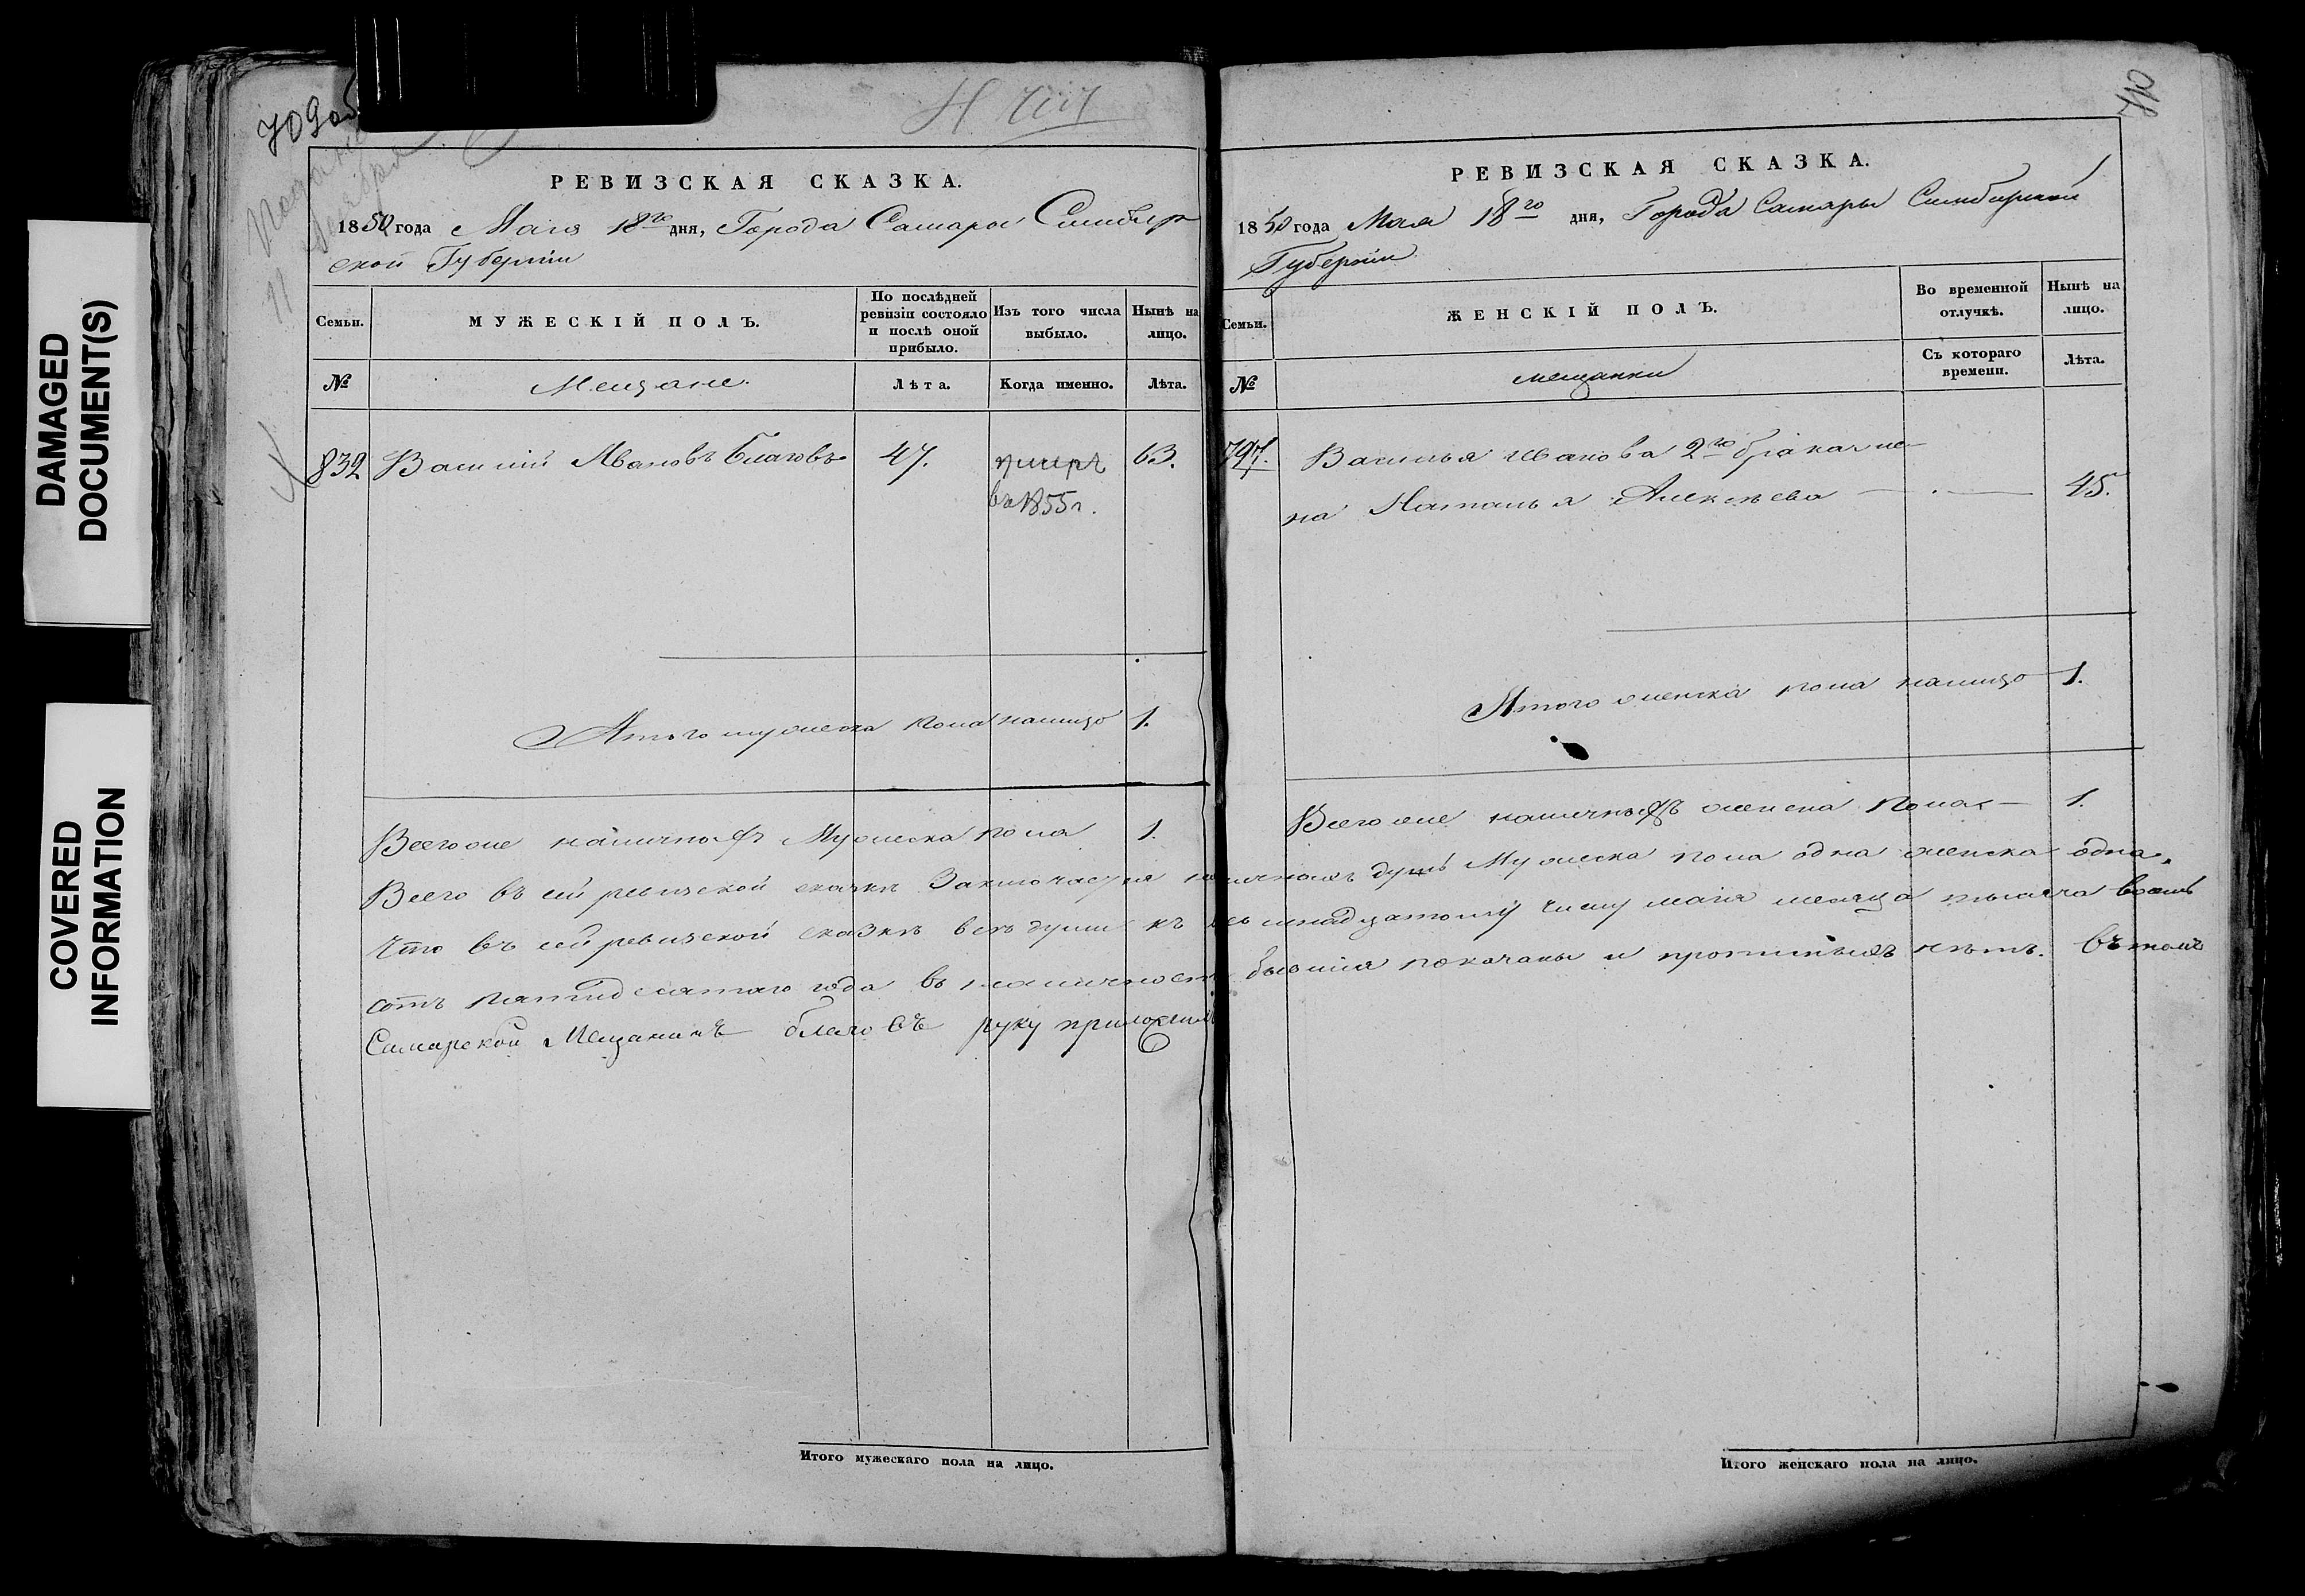 DAMAGED
DOCUMENT(S)
COVERED
INFORMATION
709 об
РЕВИЗСКАЯ СКАЗКА.
1850 года Маія 18го дня, Города Самары Симбир
ской Губерніи
Семьи.
МУЖЕСКІЙ ПОЛЪ.
По послѣдней
ревизіи состояло
и послѣ оной
прибыло.
Изъ того числа
выбыло.
Нынѣ на
лицо.
№
Мещане.
Лѣта.
Когда именно.
Лѣта.
832 Василій Ивановъ Благовъ 47. умеръ 63.
въ 1855 г.
Итого мужеска пола налицо 1.
Всего же наличныхъ Мужеска пола 1.
710
РЕВИЗСКАЯ СКАЗКА.
1850 года Маія 18го дня, Города Самары Симбирской
Губерніи
Семьи.
ЖЕНСКІЙ ПОЛЪ.
Во временной
отлучкѣ.
Нынѣ на
лицо.
№
мещанки
Съ котораго
времени.
Лѣта.
797. Василья Иванова 2го брака же
на Наталья Алексѣева — 45.
Итого женска пола налицо 1.
Всего же наличныхъ женска пола — 1.
Всего въ сей ревизской сказкѣ Заключается наличныхъ душъ Мужеска пола одна женска одна.
Что въ сей ревизской сказкѣ всѣ души къ восьмнадцатому числу маія месяца тысяча восемь
сотъ пятидесятаго года въ наличности бывшія показаны и прописныхъ нѣтъ. Въ томъ
Самарской Мещанинъ благовъ руку приложилъ
Итого мужескаго пола на лицо.
Итого женскаго пола на лицо.